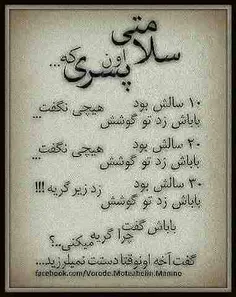 سلامتی
اون
پسری که...
۱۰ سالش بود
باباش زد تو گوشش هیچی نگفت...
۲۰ سالش بود
باباش زد تو گوشش هیچی نگفت...
۳۰ سالش بود
باباش زد تو گوشش زد زیر گریه !!!
باباش گفت
چرا گریه میکنی..؟
گفت آخه اونوقتا دستت نمیلرزید...
facebook.com/Vorode.Motealhelin.Mamno